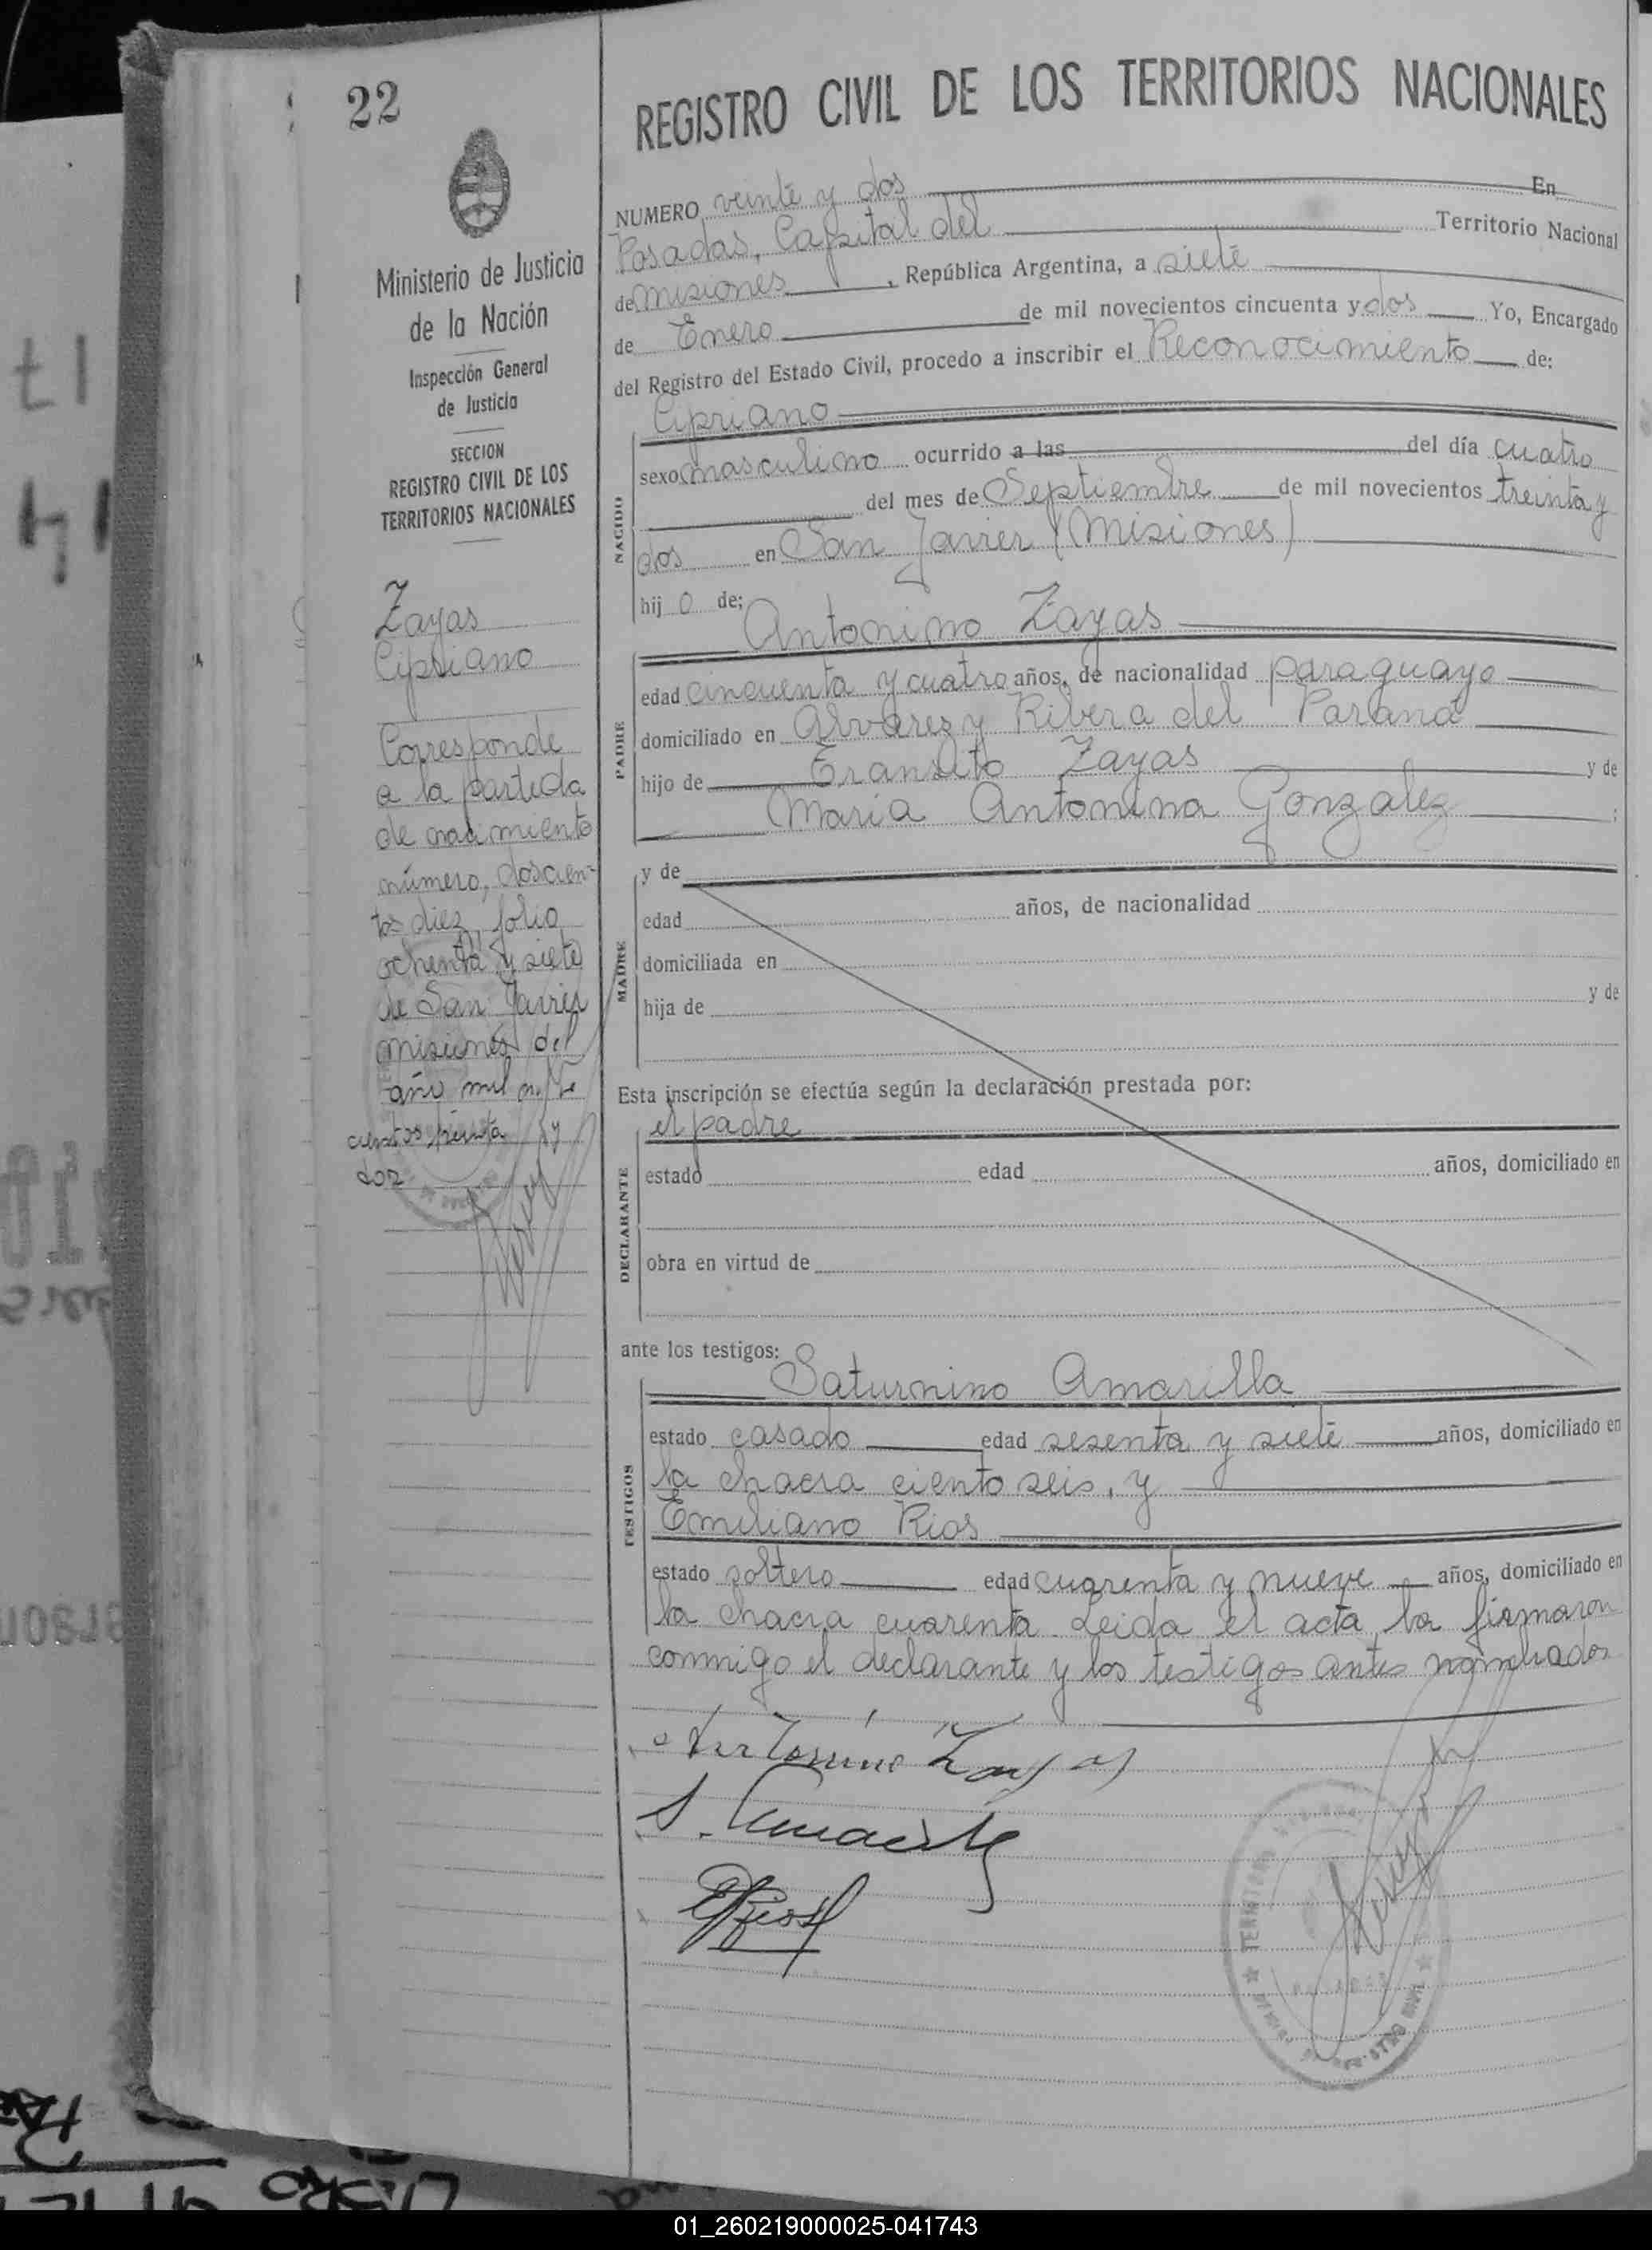 22
Ministerio de Justicia
de la Nación
Inspección General
de Justicia
SECCION
REGISTRO CIVIL DE LOS
TERRITORIOS NACIONALES
Zayas
Cipriano
Corresponde
a la partida
de nacimiento
número, doscien-
tos diez, folio
ochenta y siete
de San Javier
misiones del
año mil nove
cientos treinta y
dos
REGISTRO CIVIL DE LOS TERRITORIOS NACIONALES
NUMERO veinte y dos En
Posadas, Capital del Territorio Nacional
de misiones, República Argentina, a siete
de Enero de mil novecientos cincuenta y dos Yo, Encargado
del Registro del Estado Civil, procedo a inscribir el Reconocimiento de:
Cipriano
NACIDO
sexo masculino ocurrido a las del día cuatro
del mes de Septiembre de mil novecientos treinta y
dos en San Javier (Misiones)
hij o de;
Antonino Zayas
PADRE
edad cincuenta y cuatro años, de nacionalidad paraguayo
domiciliado en Alvarez y Ribera del Paraná
hijo de Transito Zayas y de
Maria Antonina Gonzalez ;
MADRE
y de
edad años, de nacionalidad
domiciliada en
hija de y de
Esta inscripción se efectúa según la declaración prestada por:
el padre
DECLARANTE
estado edad años, domiciliado en
obra en virtud de
ante los testigos:
Saturnino Amarilla
TESTIGOS
estado casado edad sesenta y siete años, domiciliado en
la chacra ciento seis, y
Emiliano Rios
estado soltero edad cuarenta y nueve años, domiciliado en
la chacra cuarenta. Leida el acta la firmaron
conmigo el declarante y los testigos antes nombrados
Antonino Zayas
S. Amarilla
E Rios
01_260219000025-041743